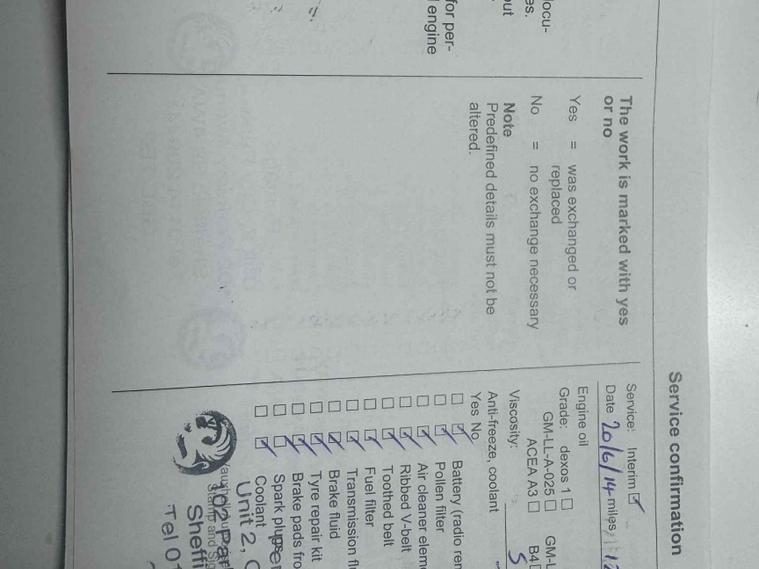 Service confirmation
ocu-
es.
out
for per-
engine
The work is marked with yes
or no
Yes = was exchanged or
replaced
No = no exchange necessary
Note
Predefined details must not be
altered.
Service: Interim
Date 20/6/14 miles
Engine oil
Grade: dexos 1
GM-LL-A-025 GM-L
ACEA A3 B4
Viscosity: 5
Anti-freeze, coolant
Yes No
Battery (radio rem
Pollen filter
Air cleaner elem
Ribbed V-belt
Toothed belt
Fuel filter
Transmission fl
Brake fluid
Tyre repair kit
Brake pads fro
Spark plugs
Coolant
Unit 2,
Sheffi
Tel 01